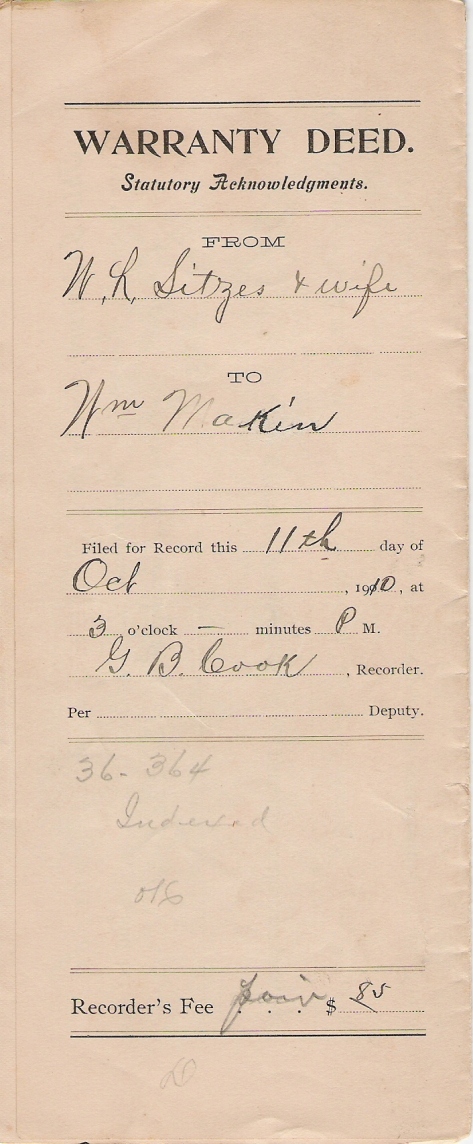 WARRANTY DEED.
Statutory Acknowledgments.
FROM
W. L. Sitzes & wife
TO
Wm Makin
Filed for Record this 11th day of
Oct , 1910, at
3 o'clock — minutes P M.
G. B. Cook , Recorder.
Per Deputy.
36-364
Indexed
Recorder's Fee paid $ 85